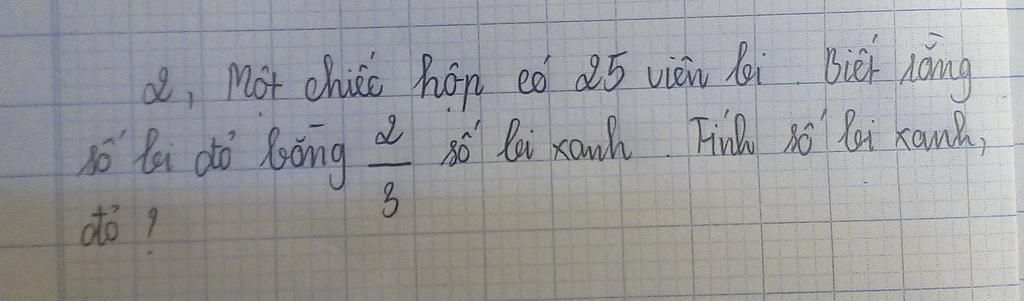 2, Một chiếc hộp có 25 viên bi. Biết rằng
số bi đỏ bằng 2/3 số bi xanh. Tính số bi xanh,
đỏ ?